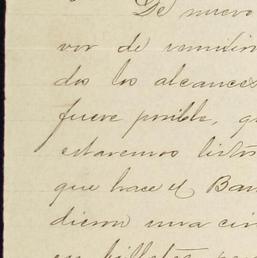 De nuevo
vor de remitir
dos los alcances
fuere posible, q
estaremos listos
que hace el Ban
dieron una cir
en billetes